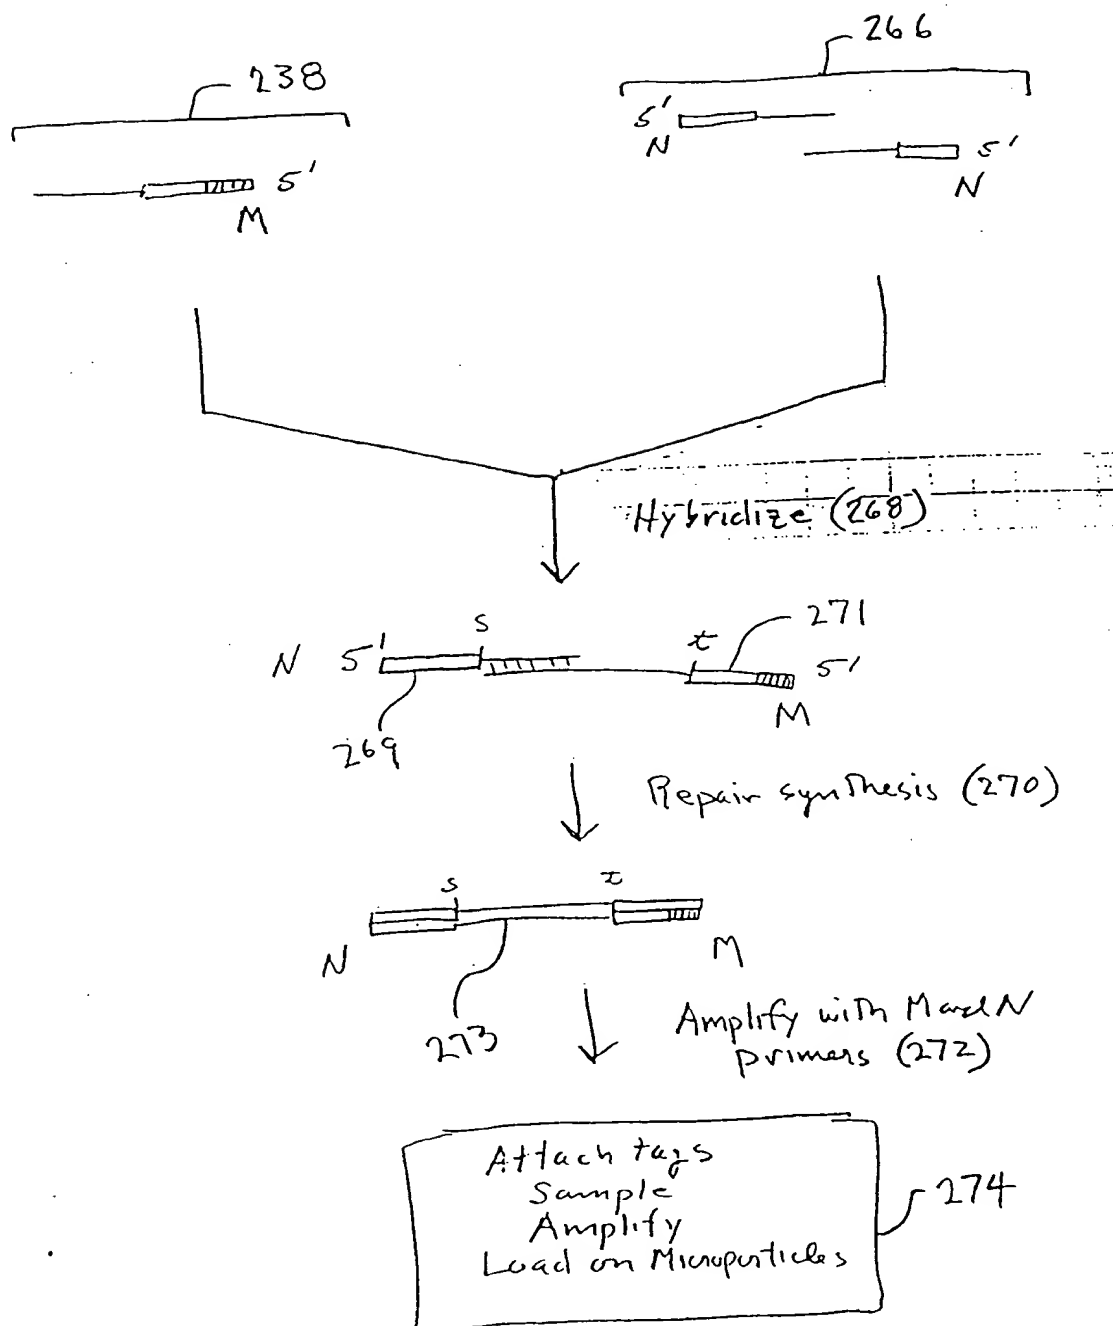 238
266
5'
N
5'
N
5'
M
Hybridize (268)
N 5' s
t 271
5'
M
269
Repair synthesis (270)
s t
N M
273
Amplify with M and N
primers (272)
Attach tags
Sample
Amplify
Load on Microparticles
274